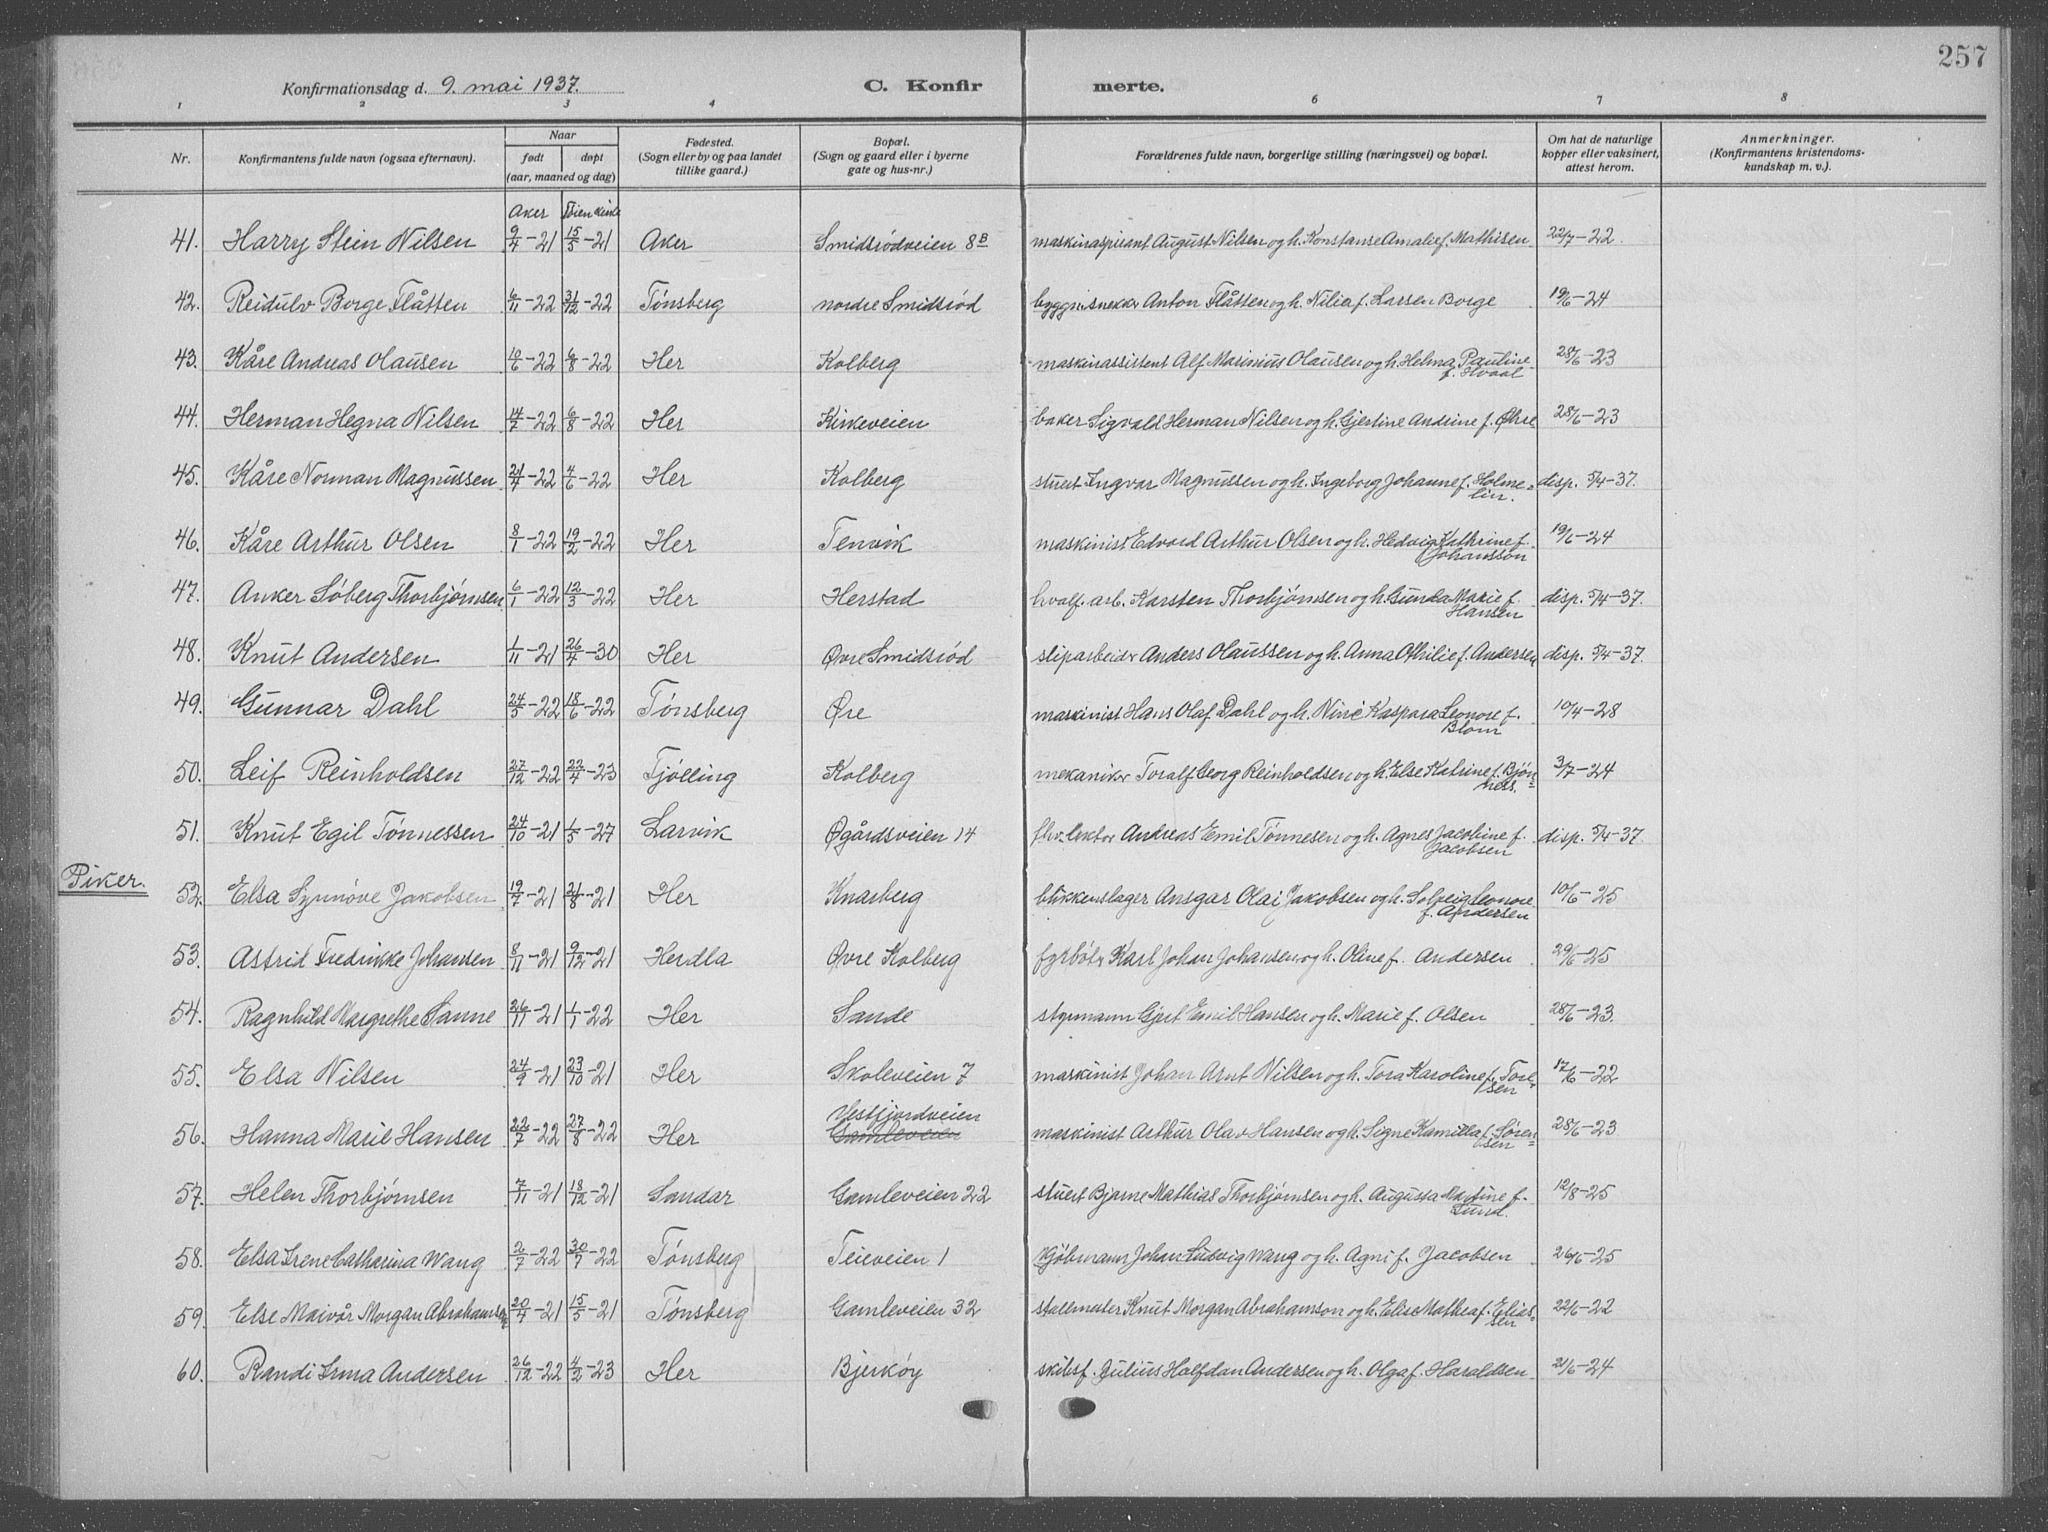 257
Konfirmationsdag d. 9. mai 1937.
C. Konfir merte.
1 2 3 4 5 6 7 8
Nr.
Konfirmantens fulde navn (ogsaa efternavn).
Naar
født døpt
(aar, maaned og dag)
Fødested.
(Sogn eller by og paa landet
tillike gaard.)
Bopæl.
(Sogn og gaard eller i byerne
gate og hus-nr.)
Forældrenes fulde navn, borgerlige stilling (næringsvei) og bopæl.
Om hat de naturlige
kopper eller vaksinert,
attest herom.
Anmerkninger.
(Konfirmantens kristendoms-
kundskap m. v.).
Aker Tøien kirke
41. Harry Stein Nilsen 9/4-21 15/5-21 Aker Smidsrødveien 8B maskinaspirant August Nilsen og h. Konstanse Amalie f. Mathisen 22/7-22.
42. Reidulv Borge Flåtten 6/11-22 31/12-22 Tønsberg nordre Smidsrød byggn.snekker Anton Flåtten og h. Nilia f. Larsen Borge 19/6-24
43. Kåre Andreas Olausen 10/6-22 6/8-22 Her Kolberg maskinassistent Alf Marinius Olausen og h. Helma Pauline 28/6-23
f. Hvaal
44. Herman Hegna Nilsen 14/7-22 6/8-22 Her Kirkeveien baker Sigvald Herman Nilsen og h. Gjertine Andrine f. Øhre 28/6-23
45. Kåre Norman Magnussen 21/4-22 4/6-22 Her Kolberg stuert Ingvar Magnussen og h. Ingeborg Johanne f. Holme- disp. 5/4-37.
lin.
46. Kåre Arthur Olsen 8/1-22 19/2-22 Her Tenvik maskinist Edvard Arthur Olsen og h. Hedvig Kathrine f. 19/6-24
Johansson
47. Anker Søberg Thorbjørnsen 6/1-22 12/3-22 Her Herstad hvalf. arb. Karsten Thorbjørnsen og h. Gunda Marie f. disp. 5/4-37.
Hansen
48. Knut Andersen 1/11-21 26/4-30 Her Øvre Smidsrød sliparbeider Anders Olaussen og h. Anna Othilie f. Andersen disp. 5/4-37.
49. Gunnar Dahl 24/5-22 18/6-22 Tønsberg Øre maskinist Hans Olaf Dahl og h. Nine Kaspara Leonore f. 10/4-28
Blom
50. Leif Reinholdsen 27/12-22 22/4-23 Tjølling Kolberg mekaniker Toralf Georg Reinholdsen og h. Else Katrine f. Bjøn- 3/7-24
nes.
51. Knut Egil Tønnessen 24/10-21 1/5-27 Larvik Øgårdsveien 14 fhv. lektor Andreas Emil Tønnesen og h. Agnes Jacobine f. disp. 5/4-37.
Jacobsen
Piker.
52. Elsa Synnøve Jakobsen 19/7-21 21/8-21 Her Knarberg blikkenslager Ansgar Olai Jakobsen og h. Solveig Leonore 10/6-25
f. Andersen
53. Astrid Fredrikke Johansen 8/11-21 9/12-21 Herdla Øvre Kolberg fyrbøter Karl Johan Johansen og h. Oline f. Andersen 29/6-25
54. Ragnhild Margrethe Sanne 26/11-21 1/1-22 Her Sande styrmann Gjert Emil Hansen og h. Marie f. Olsen 28/6-23.
55. Elsa Nilsen 24/9-21 23/10-21 Her Skoleveien 7 maskinist Johan Arnt Nilsen og h. Tora Karoline f. Tore- 17/6-22
sen
Vestfjordveien
56. Hanna Marie Hansen 22/7-22 27/8-22 Her Gamleveien maskinist Arthur Olav Hansen og h. Signe Kamilla f. Søren- 28/6-23
sen
57. Helen Thorbjørnsen 7/11-21 18/12-21 Sandar Gamleveien 22 stuert Bjarne Mathias Thorbjørnsen og h. Augusta Martine f. 12/8-25
Lund.
58. Elsa Irene Catharina Wang 2/7-22 30/7-22 Tønsberg Teieveien 1 kjøbmann Johan Ludvig Wang og h. Agni f. Jacobsen 26/6-25
59. Else Maivår Morgan Abrahamsen 20/4-21 15/5-21 Tønsberg Gamleveien 32 stallmester Knut Morgan Abrahamson og h. Elise Mathea f. Elias- 22/6-22
sen
60. Randi Irma Andersen 26/12-22 4/2-23 Her Bjerkøy skibsf. Julius Halfdan Andersen og h. Olga f. Haraldsen 21/6-24